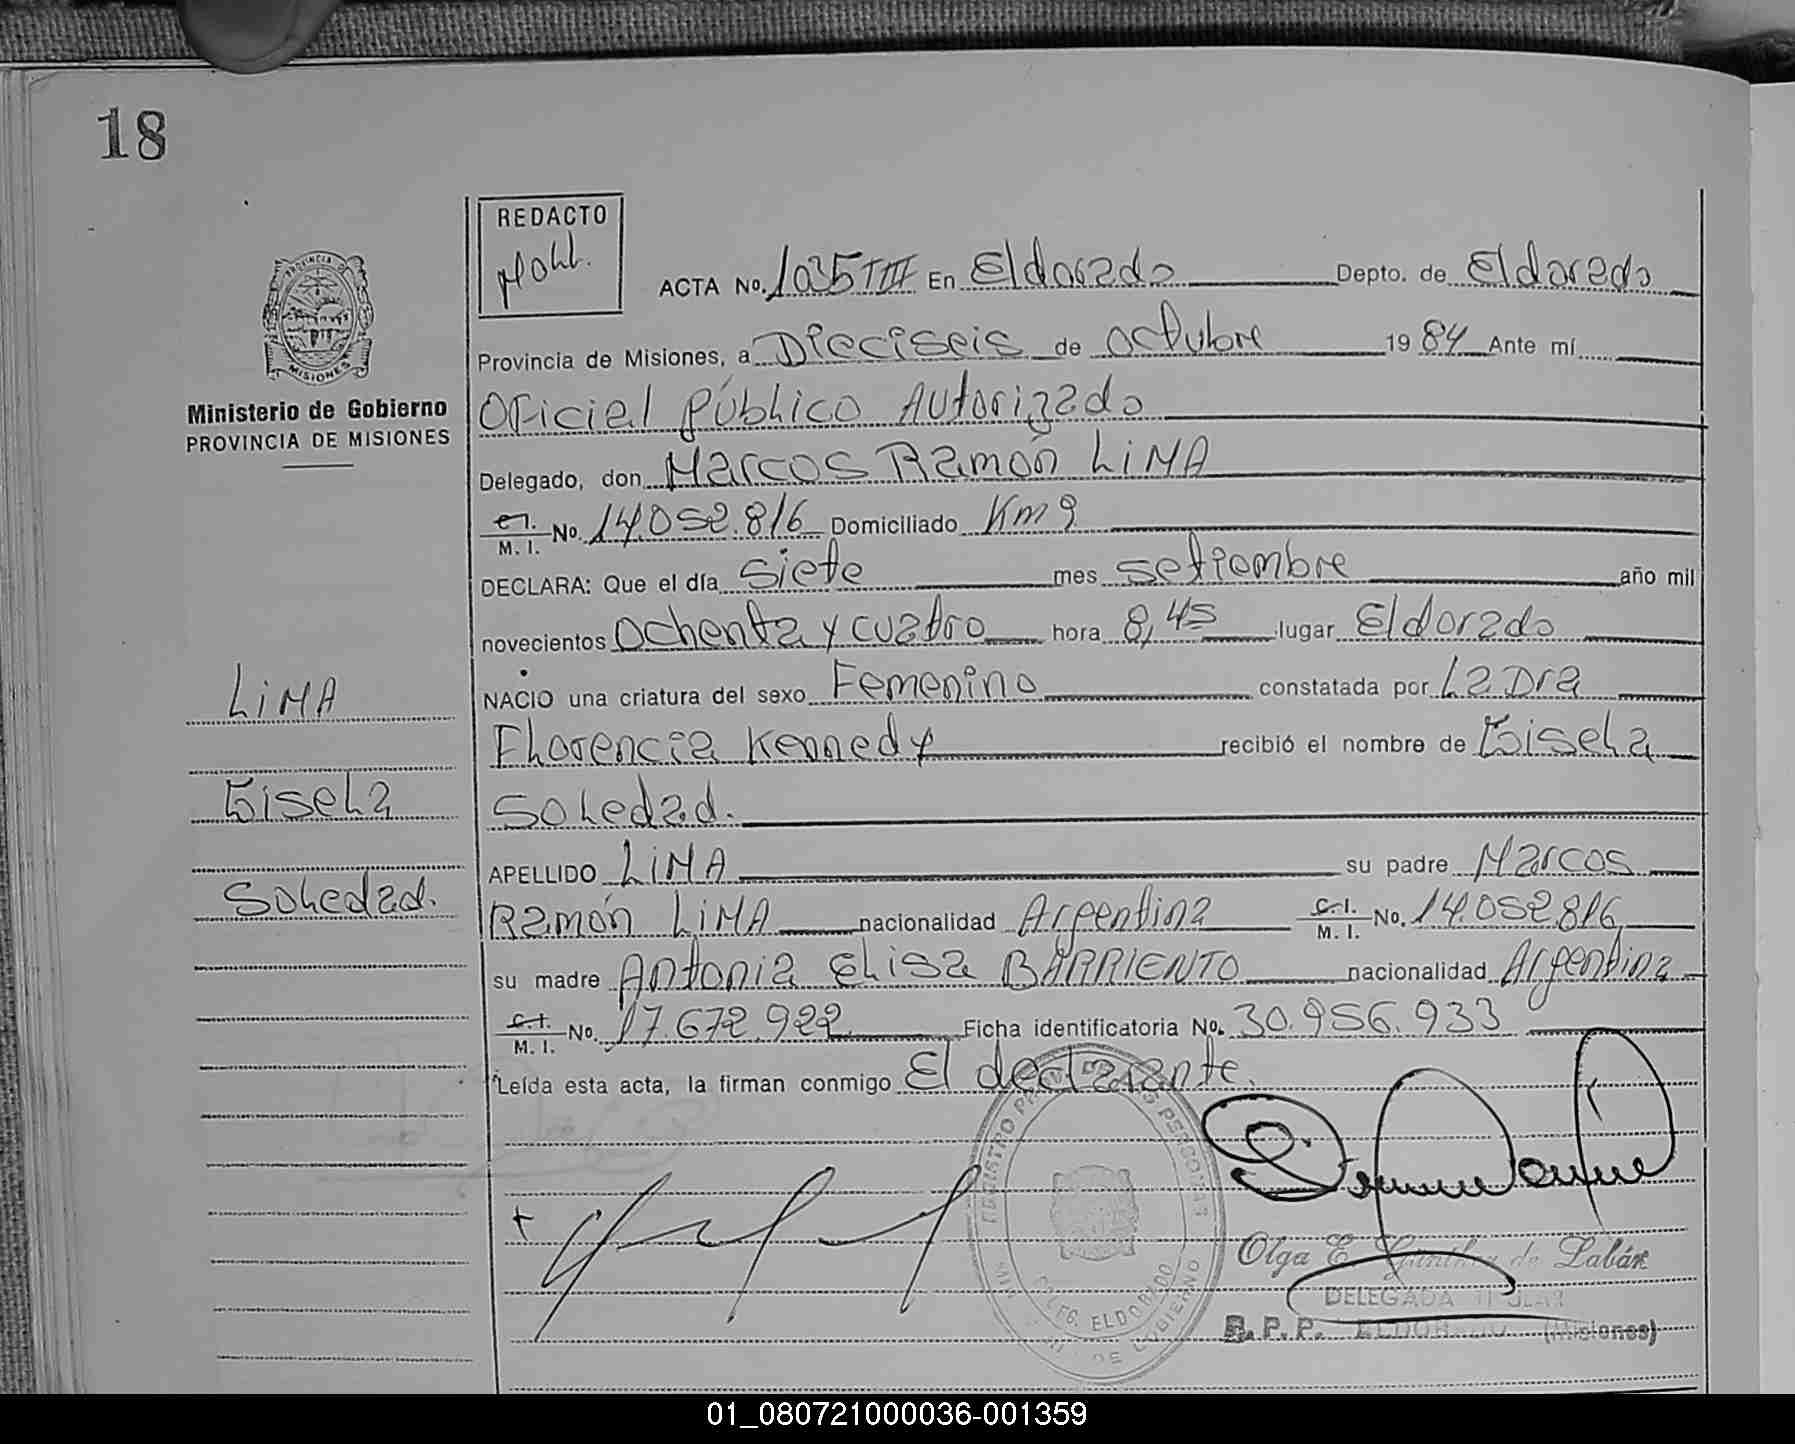 18
REDACTO
ACTA No. 1035 III En Eldorado Depto. de Eldorado
Provincia de Misiones, a Dieciseis de octubre 1984 Ante mí
Ministerio de Gobierno
PROVINCIA DE MISIONES
Oficial Público Autorizado
Delegado, don Marcos Ramón LIMA
M. I. No. 14.052.816 Domiciliado Km 9
DECLARA: Que el día siete mes setiembre año mil
novecientos ochenta y cuatro hora 8,45 lugar Eldorado
NACIO una criatura del sexo Femenino constatada por La Dra
LIMA
Florencia Kennedy recibió el nombre de Gisela
Gisela
Soledad.
APELLIDO LIMA su padre Marcos
Soledad.
Ramón LIMA nacionalidad Argentina C.I. M. I. No. 14.052.816
su madre Antonia Elisa BARRIENTO nacionalidad Argentina
C.I. M. I. No. 17.672.922 Ficha identificatoria No. 30.956.933
Leída esta acta, la firman conmigo El declarante.
Olga E. de Labán
DELEGADA TITULAR
R.P.P. ELDORADO (Misiones)
PROVINCIA DE MISIONES
DELEG. ELDORADO
01_080721000036-001359